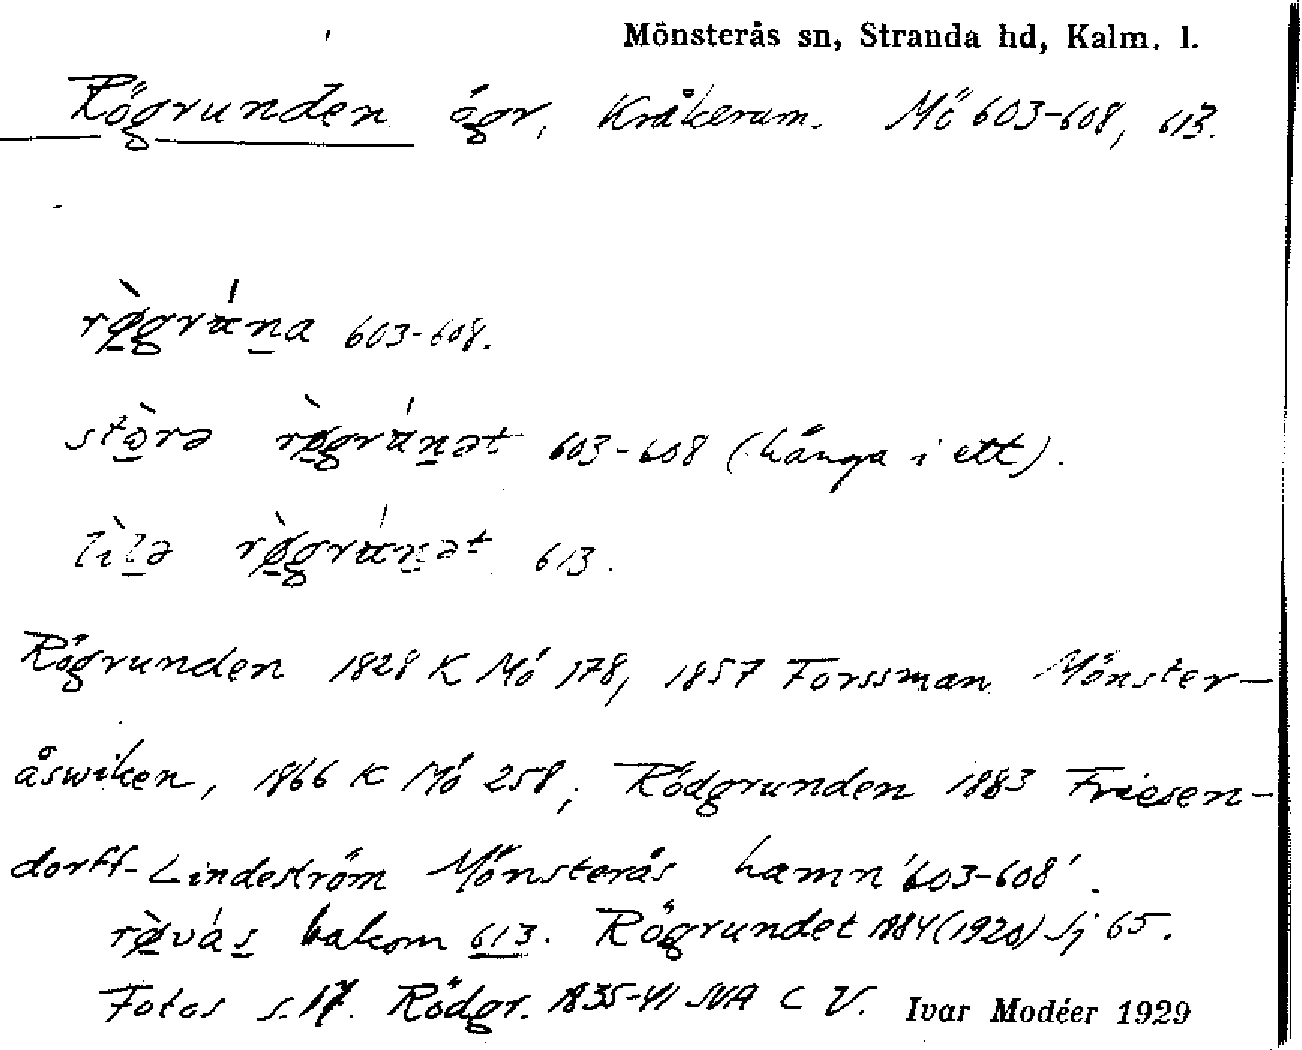 Mönsterås sn, Stranda hd, Kalm. l.
Rögrunden ögr, Kråkerum. Mö 603-608, 613.
rø̱̀grúṉa 603-608.
stò̱rə rø̱̀grúṉət 603-608 (hänga i ett).
lìḻə rø̱̀grúṉət 613.
Rögrunden 1828 K Mö 178, 1857 Forssman Mönster-
åswiken, 1866 K Mö 258, Rödgrunden 1883 Friesen-
dorff-Lindeström Mönsterås hamn '603-608'.
rø̱̀vás̱ bakom 613. Rögrundet 1884 (1920) Sj 65.
Fotos s. 17. Rödgr. 1835-41 SVA C V. Ivar Modéer 1929